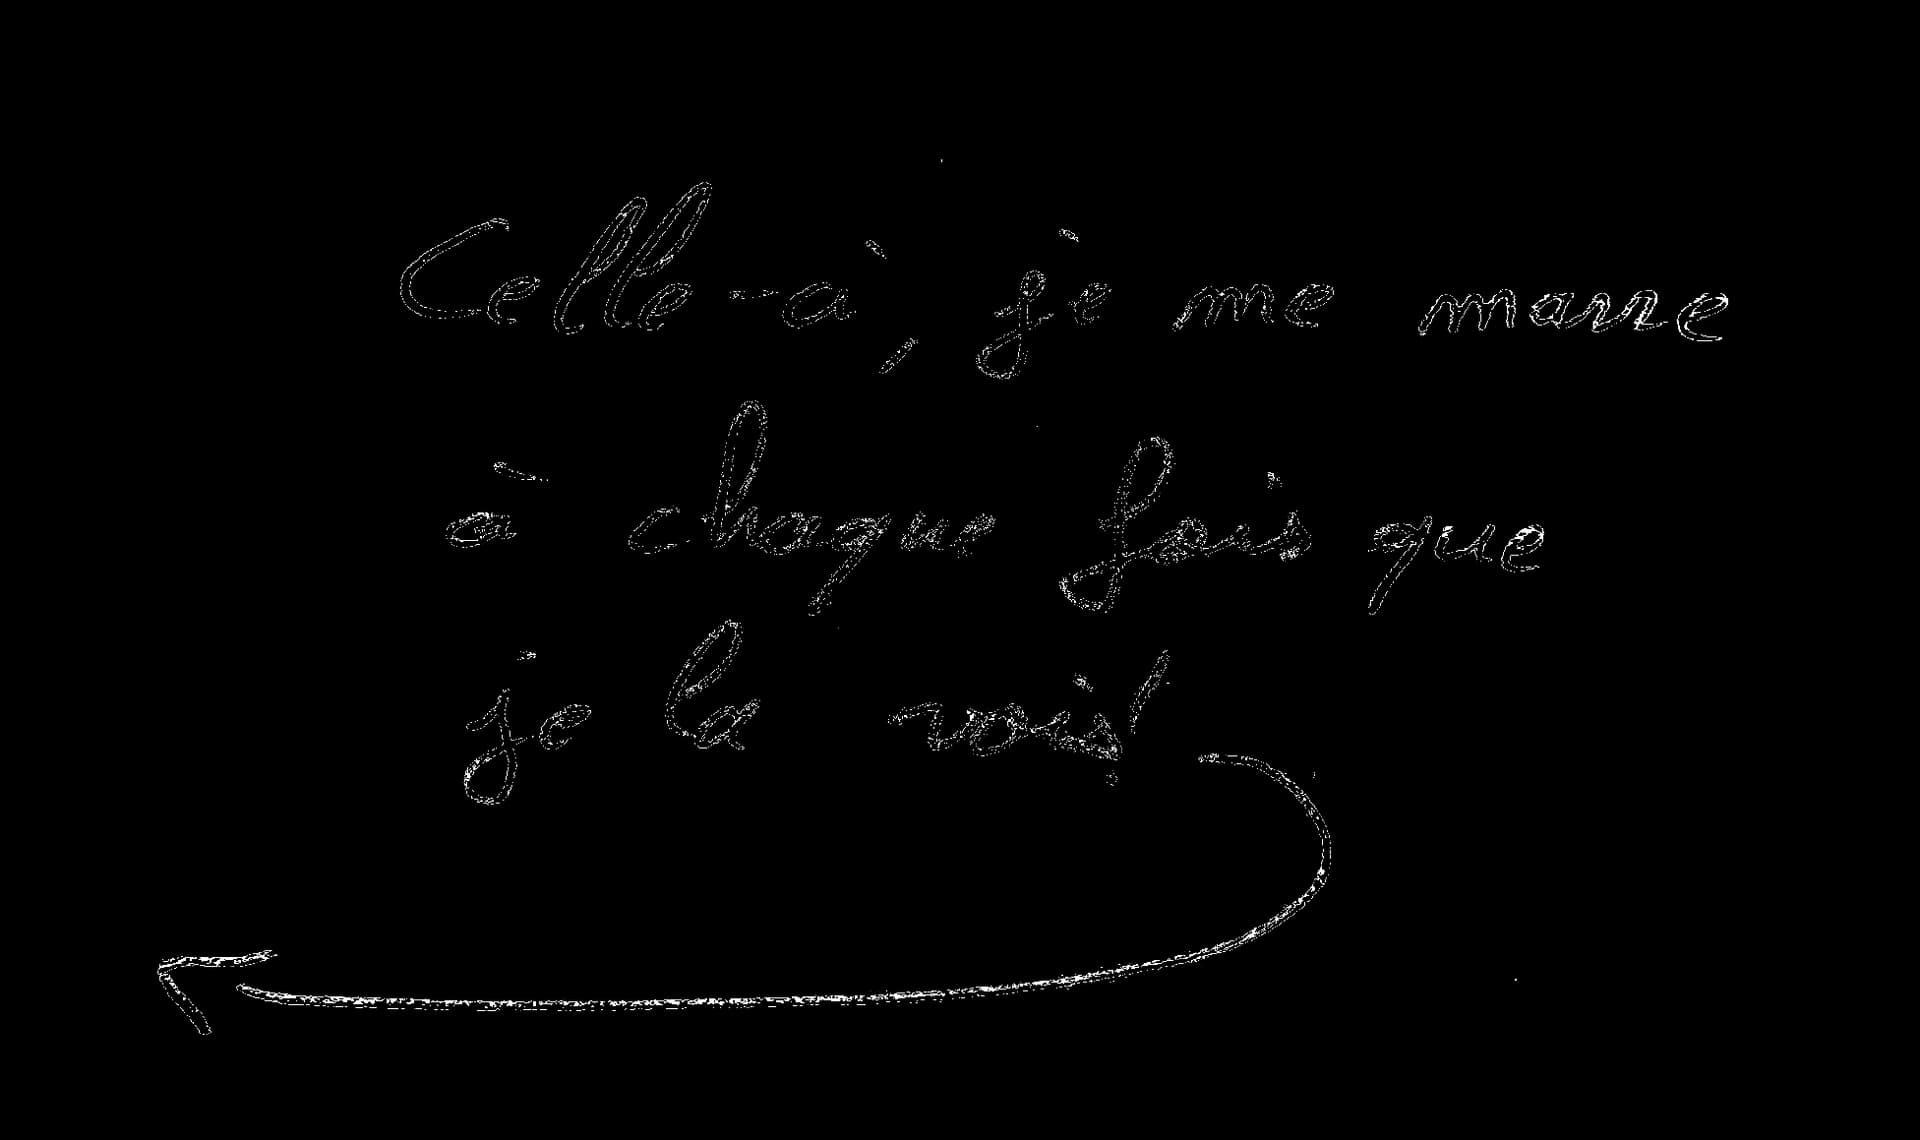 Celle-à, je me marre
à chaque fois que
je la vois!